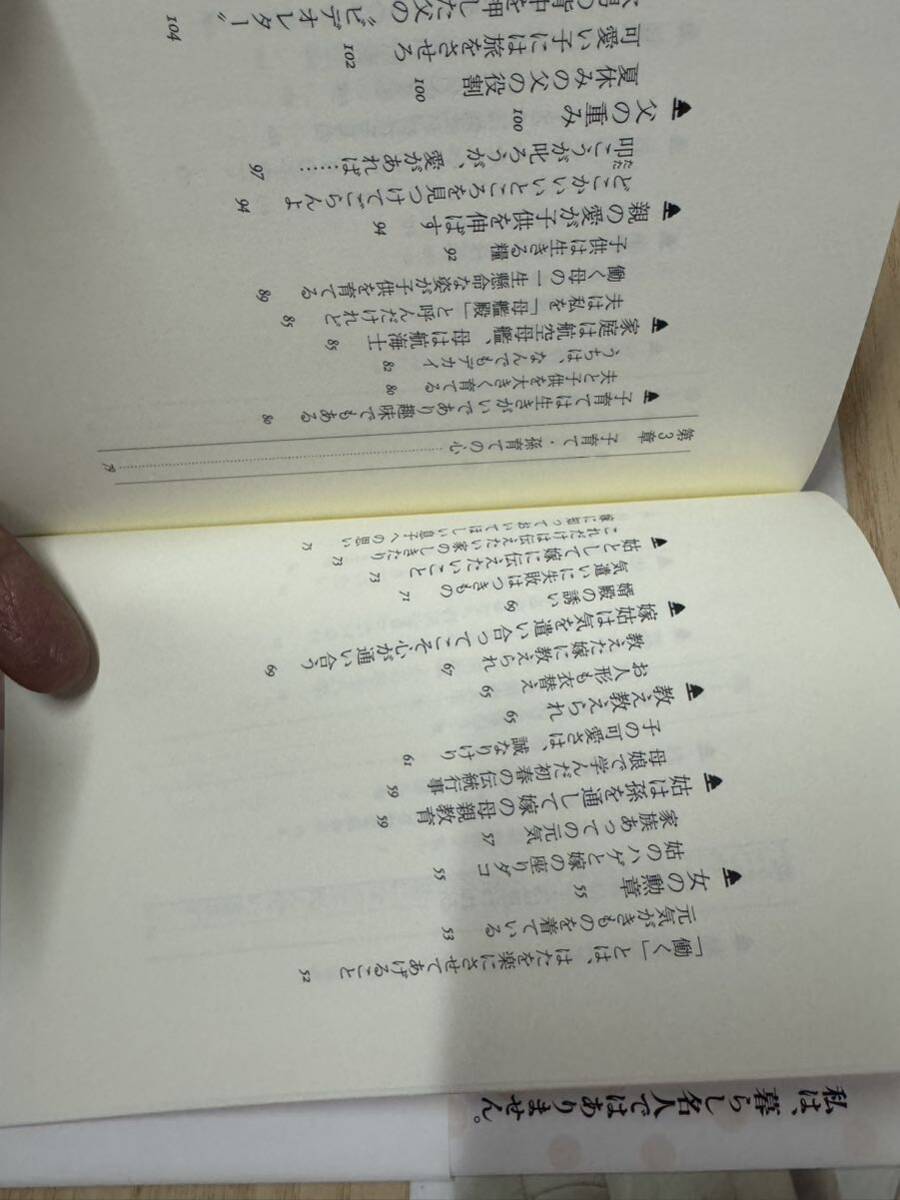 「働く」とは、はたを楽にさせてあげること 52
元気がきものを着ている 53
女の勲章 55
姑のハゲと嫁の座りダコ 55
家族あっての元気 57
姑は孫を通して嫁の母親教育 59
母娘で学んだ初春の伝統行事 59
子の可愛さは、誠なりけり 61
教え教えられ 65
お人形も衣替え 65
教えた嫁に教えられ 67
嫁姑は気を遣い合ってこそ心が通い合う 69
婿殿の誘い 69
気遣いに失敗はつきもの 71
姑として嫁に伝えたいこと 73
これだけは伝えたい家のしきたり 73
嫁に知っておいてほしい息子への思い 75
第3章 子育て・孫育ての心 79
子育ては生きがいであり趣味でもある 80
夫と子供を大きく育てる 80
うちは、なんでもデカイ 82
家庭は航空母艦、母は航海士 85
夫は私を「母艦殿」と呼んだけれど 85
働く母の一生懸命な姿が子供を育てる 89
子供は生きる糧 92
親の愛が子供を伸ばす 94
どこかいいところを見つけてごらんよ 94
叩こうが叱ろうが、愛があれば…… 97
たた
父の重み 100
夏休みの父の役割 100
可愛い子には旅をさせろ 102
背中を押した父の〝ビデオレター〟 104
私は、暮らし名人ではありません。